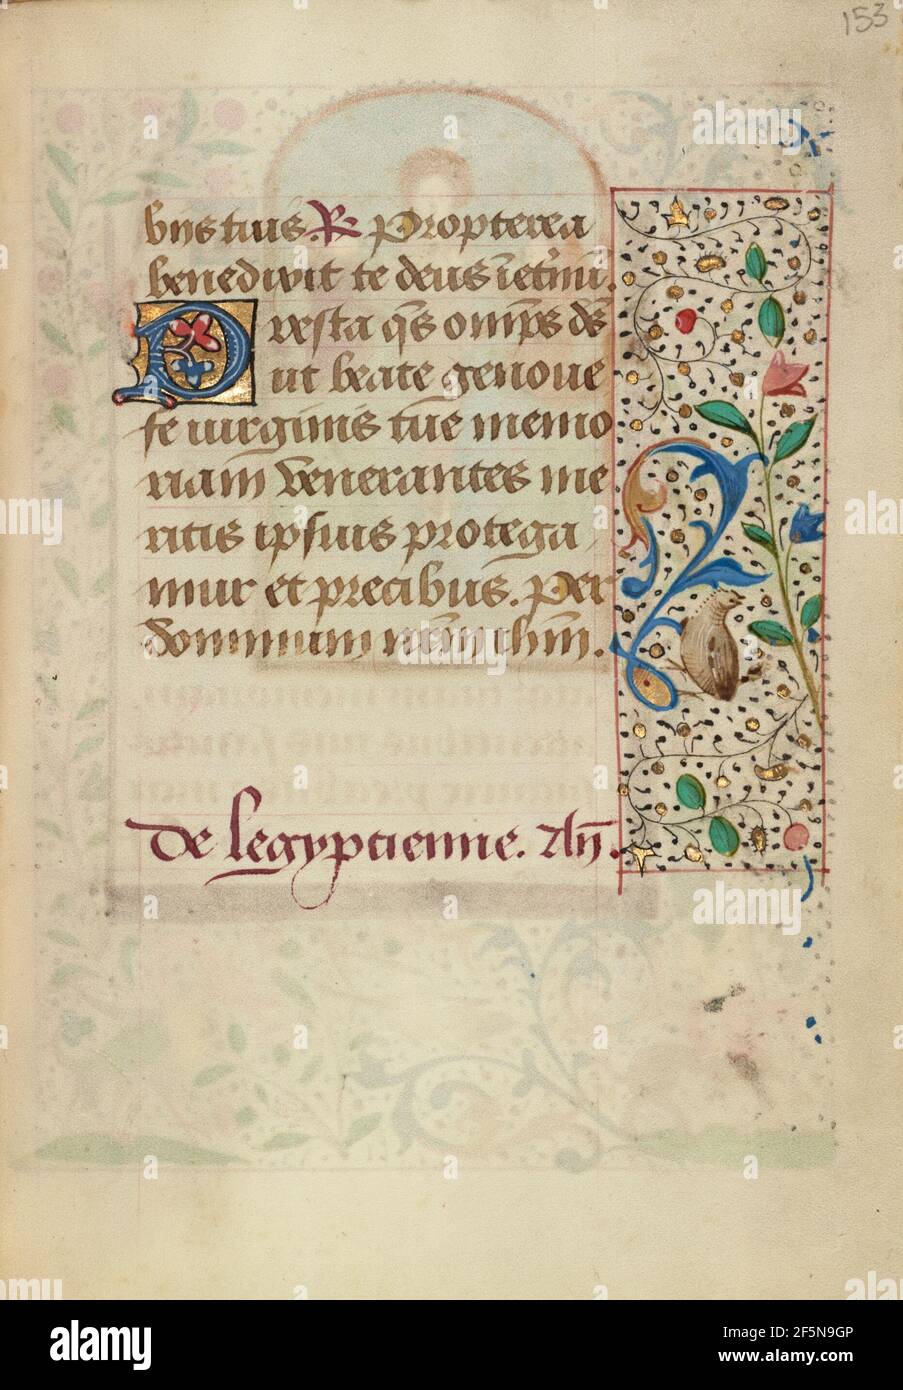 153
bijs tuis. R Propterea
benedixit te deus ī etnū.
Presta qs omps ds
ut beate genoue
fe uirginis tue memo
riam venerantes me
ritis ipsius protega
mur et precibus. Per
dominum nrm ihm.
De legyptienne. An.
alamy
Image ID: 2F5N9GP
www.alamy.com